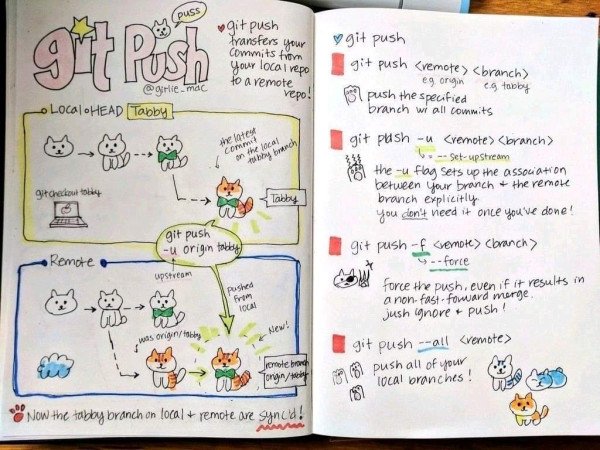 git Push
puss
@girlie_mac
git push
transfers your
commits from
your local repo
to a remote
repo!
Local HEAD Tabby
the latest
commit
on the local
tabby branch
git checkout tabby
Tabby
git push
-u origin tabby
Remote
upstream
pushed
from
local
was origin/tabby
New!
remote branch
origin/tabby
Now the tabby branch on local & remote are sync'd!
git push
git push <remote> <branch>
e.g. origin e.g. tabby
push the specified
branch w/ all commits
git push -u <remote> <branch>
= --set-upstream
the -u flag sets up the association
between your branch & the remote
branch explicitly.
you don't need it once you've done!
git push -f <remote> <branch>
--force
force the push, even if it results in
a non-fast-forward merge.
just ignore & push!
git push --all <remote>
push all of your
local branches!